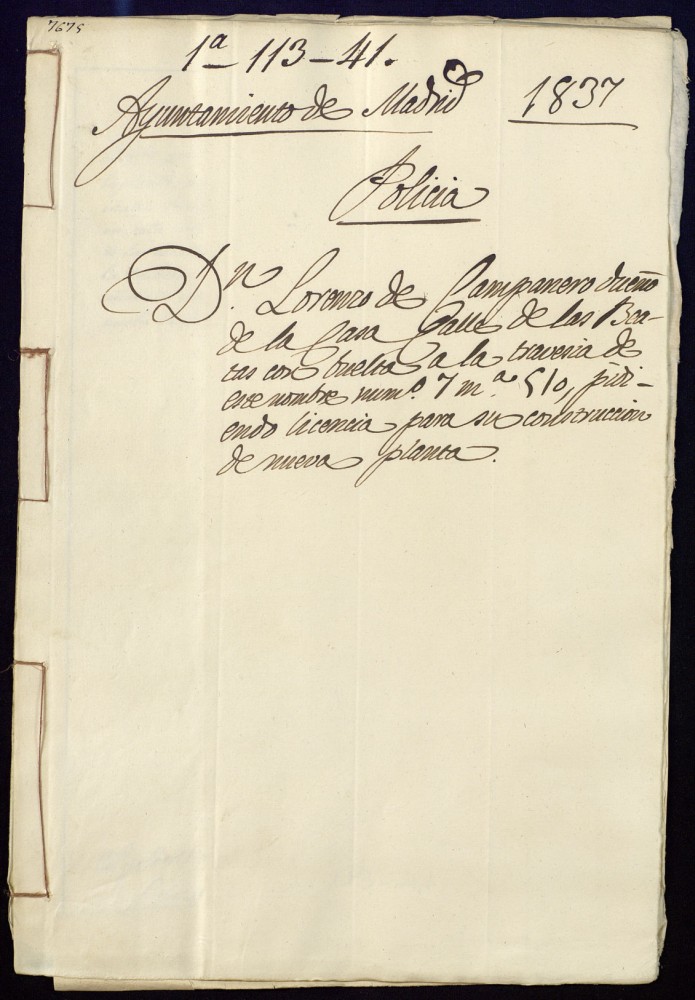 7675
1ª - 113 - 41.
Ayuntamiento de Madrid 1837
Policia
Dn. Lorenzo de Campanero dueño
de la Casa Calle de las Bea-
tas con buelta a la travesia de
este nombre numº. 7 mª. 510, pidi-
endo licencia para su construccion
de nueva planta.